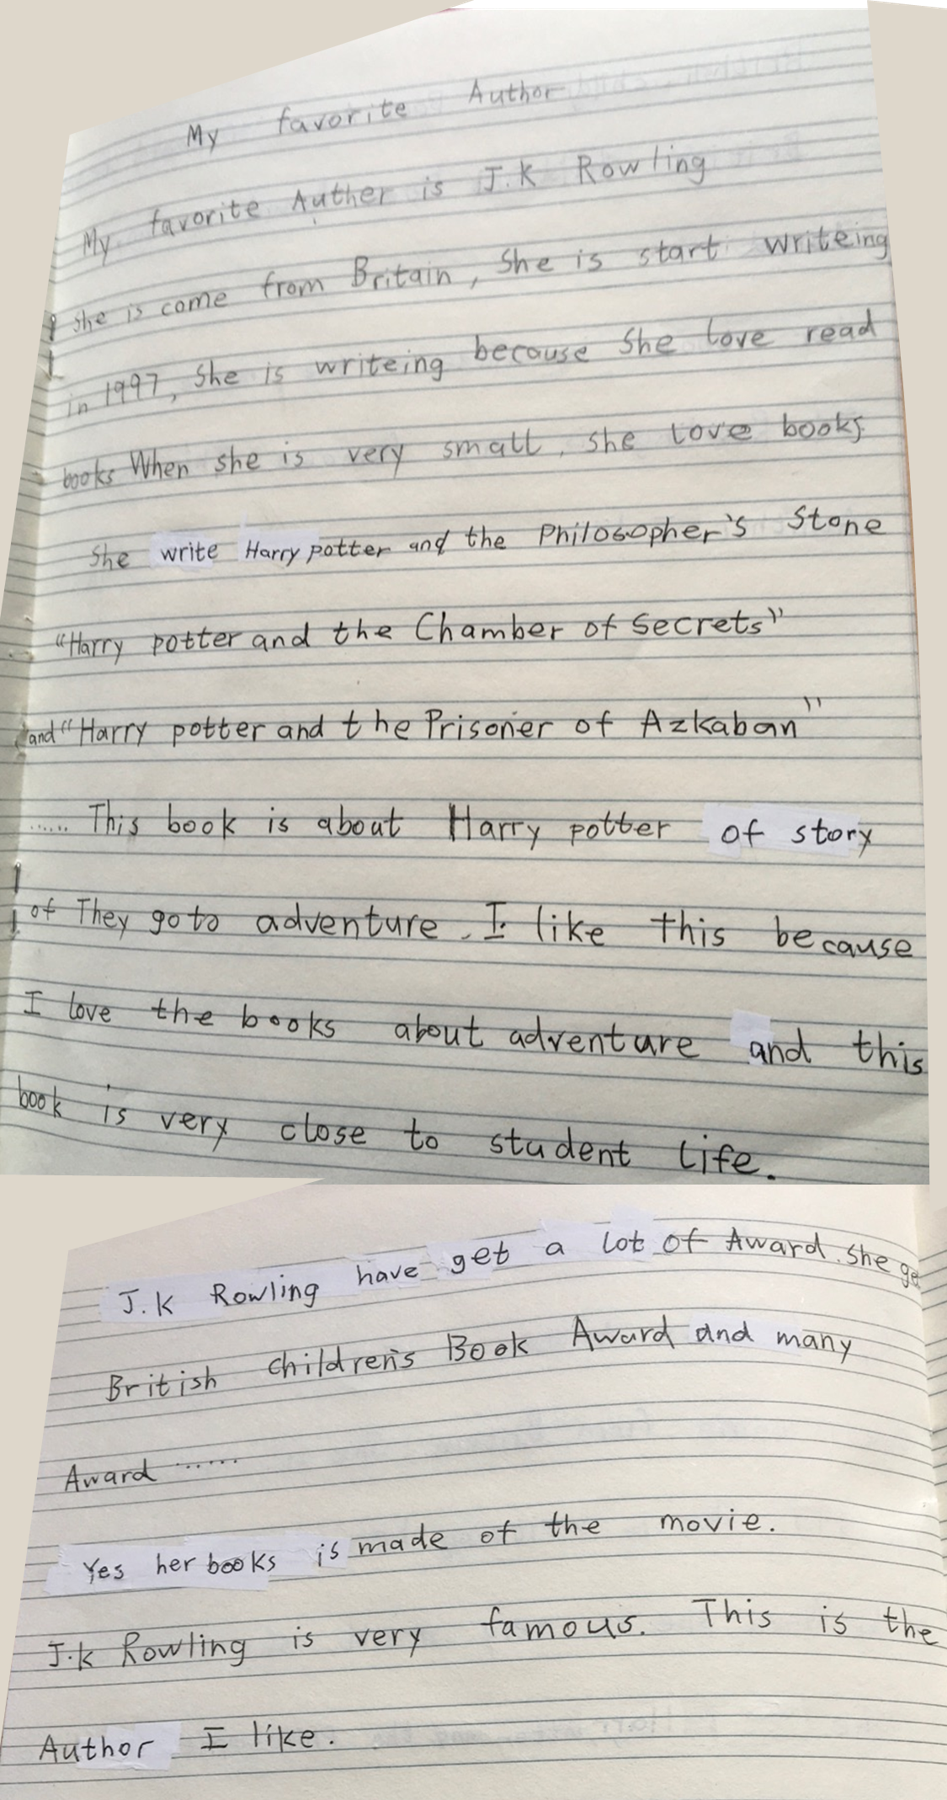 My favorite Author
My favorite Auther is J.K Rowling
She is come from Britain, She is start writeing
in 1997, She is writeing because She love read
books When she is very small, she love books.
She write Harry potter and the Philosopher's Stone
"Harry potter and the Chamber of Secrets"
and "Harry potter and the Prisoner of Azkaban"
...... This book is about Harry potter of story
of They go to adventure. I like this because
I love the books about adventure and this
book is very close to student life.
J.K Rowling have get a lot of Award. She
British children's Book Award and many
Award ......
Yes her books is made of the movie.
J.k Rowling is very famous. This is the
Author I like.